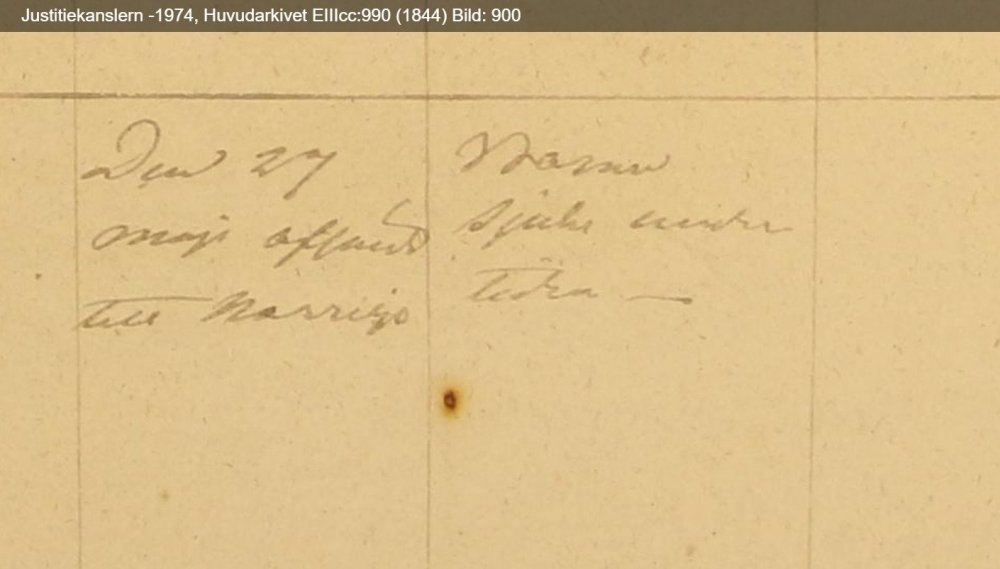 Justitiekanslern -1974, Huvudarkivet EIIIcc:990 (1844) Bild: 900
Den 27
maji afsänd
till Norrige
sjuk under
tiden —